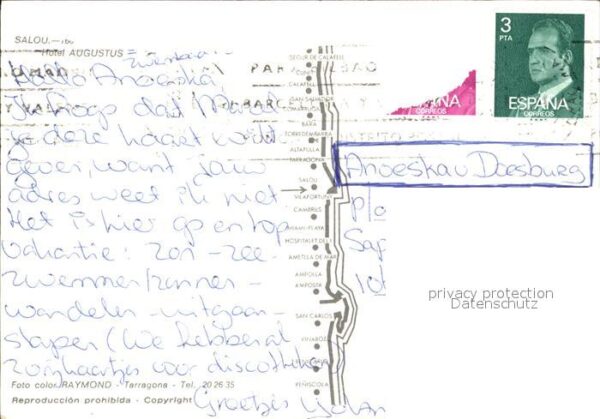 SALOU.—
Hotel AUGUSTUS
Hallo Anoeska,
Ik hoop dat
je deze kaart wilt
geven, want jouw
adres weet ik niet.
Het is hier op en top
vakantie: zon - zee -
zwemmen/zonnen -
wandelen - uitgaan -
slapen (We hebben al
voor discotheken)
Groetjes
Foto color RAYMOND - Tarragona - Tel. 20 26 35
Reproducción prohibida - Copyright
SEGUR DE CALAFELL
CALAFELL
SAN SALVADOR
BARA
TORREDEMBARRA
ALTAFULLA
TARRAGONA
SALOU
VILAFORTUNY
CAMBRILS
MIAMI-PLAYA
HOSPITALET DEL
AMETLLA DE MAR
AMPOLLA
AMPOSTA
SAN CARLOS
VINAROZ
PEÑISCOLA
ESPAÑA
CORREOS
3
PTA
ESPAÑA
CORREOS
Anoeska v Doesburg
p/o
privacy protection
Datenschutz